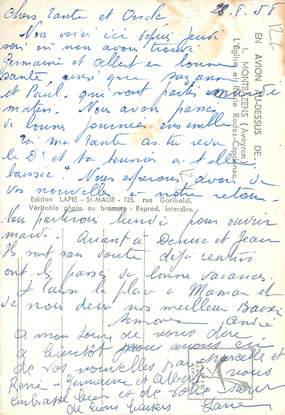 28.8.58
Chers Tante et Oncle
Nous voici ici depuis jeudi
soir où nous avons trouvé
Germaine et Albert en bonne
santé ainsi que Suzanne
et Paul, qui sont partis
matin. Nous avons passé
de bonnes journées ensemble
Toi ma Tante as tu revu
le Dr et ta tension a t'elle
baissée? Nous espérons avoir de
vos nouvelles à notre retour.
Nous partirons lundi pour ouvrir
mardi. Quant à Denise et Jean
ils sont sans doute déjà rentrés
ont ils passés de bonnes vacances.
Je laisse la place à Maman et
de nous deux nos meilleurs Baisers
Simone André
a mon tour de vous dire
a bientôt
de vos nouvelles par Marcelle et
René - Germaine et Albert
embrasse bien et de votre sœur
de Gros Baisers
EN AVION AU-DESSUS DE...
1. MONTBAZENS (Aveyron)
L'Église et Route Rodez-Capdenac
Edition LAPIE - St-MAUR - 125, rue Garibaldi.
Véritable photo au bromure - Reprod. interdite.